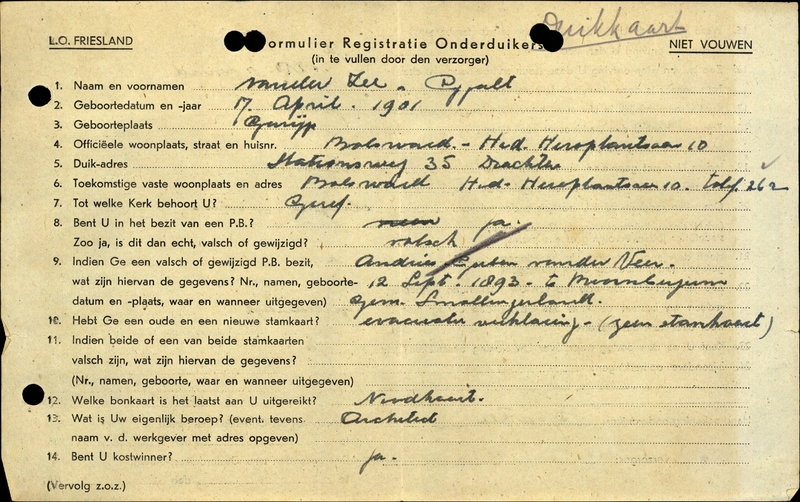 Duikkaart
L.O. FRIESLAND
Formulier Registratie Onderduikers
NIET VOUWEN
(in te vullen door den verzorger)
1. Naam en voornamen van der Zee, Pyjalt
2. Geboortedatum en -jaar 17 April. 1901
3. Geboorteplaats Garijp
4. Officiëele woonplaats, straat en huisnr. Bolsward. - Hed. 10
5. Duik-adres Stationsweg 35 Drachten
6. Toekomstige vaste woonplaats en adres Bolsward Hed. 10. telef. 262
7. Tot welke Kerk behoort U? Geref.
8. Bent U in het bezit van een P.B.? neen ja.
Zoo ja, is dit dan echt, valsch of gewijzigd? valsch
9. Indien Ge een valsch of gewijzigd P.B. bezit, Andries van der Veer.
wat zijn hiervan de gegevens? Nr., namen, geboorte- 12 Sept. 1893. te
datum en -plaats, waar en wanneer uitgegeven) gem. Smallingerland.
10. Hebt Ge een oude en een nieuwe stamkaart? evacuatie verklaring - (geen stamkaart)
11. Indien beide of een van beide stamkaarten
valsch zijn, wat zijn hiervan de gegevens?
(Nr., namen, geboorte, waar en wanneer uitgegeven)
12. Welke bonkaart is het laatst aan U uitgereikt? Noodkaart.
13. Wat is Uw eigenlijk beroep? (event. tevens Architect
naam v. d. werkgever met adres opgeven)
14. Bent U kostwinner? ja.
(Vervolg z.o.z.)